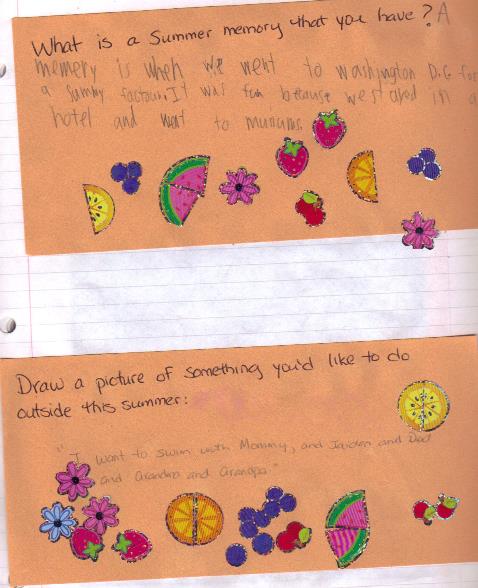 What is a Summer memory that you have? A
memery is when we went to washington D.C for
a sumny factoun. It was fun because we stared in a
hotel and wat to muniums.
Draw a picture of something you'd like to do
outside this summer:
"I want to swim with Mommy, and Jaiden and Dad
and Grandma and Grandpa."